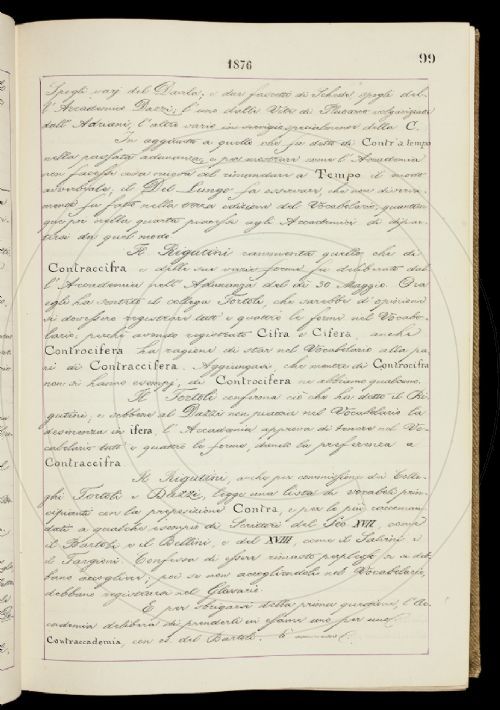 1876
99
Spogli varj del Davila; e due fascetti di Schede spogli del-
l'Accademico Dazzi; l'uno dalla Vita di Plutarco volgarizzata
dall'Adriani, l'altro vario in esempi specialmente della C.
In aggiunta a quello che fu detto di Contr'a tempo
nella passata adunanza, e per mostrare come l'Accademia
non facesse cosa nuova col rimandare a Tempo il modo
avverbiale, il Del Lungo fa osservare che non diversa-
mente fu fatto nella terza edizione del Vocabolario, quantun-
que poi nella quarta piacesse agli Accademici di dipar-
tirsi da quel modo.
Il Rigutini rammenta quello che di
Contraccifra e delle sue varie forme fu deliberato dal-
l'Accademia nell'Adunanza del dì 30 Maggio. Ora
egli ha sentito il collega Tortoli, che sarebbe d'opinione
si dovessero registrare tutt'e quattro le forme nel Vocabo-
lario; perchè avendo registrato Cifra e Cifera, anche
Controcifera ha ragione di star nel Vocabolario alla pa-
ri di Contraccifera. Aggiungasi, che mentre di Controcifra
non si hanno esempj, di Controcifera ne abbiamo qualcuno.
Il Tortoli conferma ciò che ha detto il Ri-
gutini; e sebbene al Dazzi non piaccia nel Vocabolario la
desinenza in ifera, l'Accademia approva di tenere nel Vo-
cabolario tutt'e quattro le forme, dando la preferenza a
Contraccifra.
Il Rigutini, anche per commissione dei Colle-
ghi Tortoli e Dazzi, legge una lista di vocaboli prin-
cipianti con la preposizione Contra, e per lo più raccoman-
dati a qualche esempio di Scrittori del Sec. XVII, come
il Bartoli e il Bellini, e del XVIII, come il Salvini e
il Targioni. Confessa di essere rimasto perplesso se si deb-
bano accogliere; poi se non accogliendoli nel Vocabolario,
debbano registrarsi nel Glossario.
E per sbrigarsi della prima questione, l'Ac-
cademia delibera di prenderli in esame uno per uno.
Contraccademia, con es. del Bartoli.